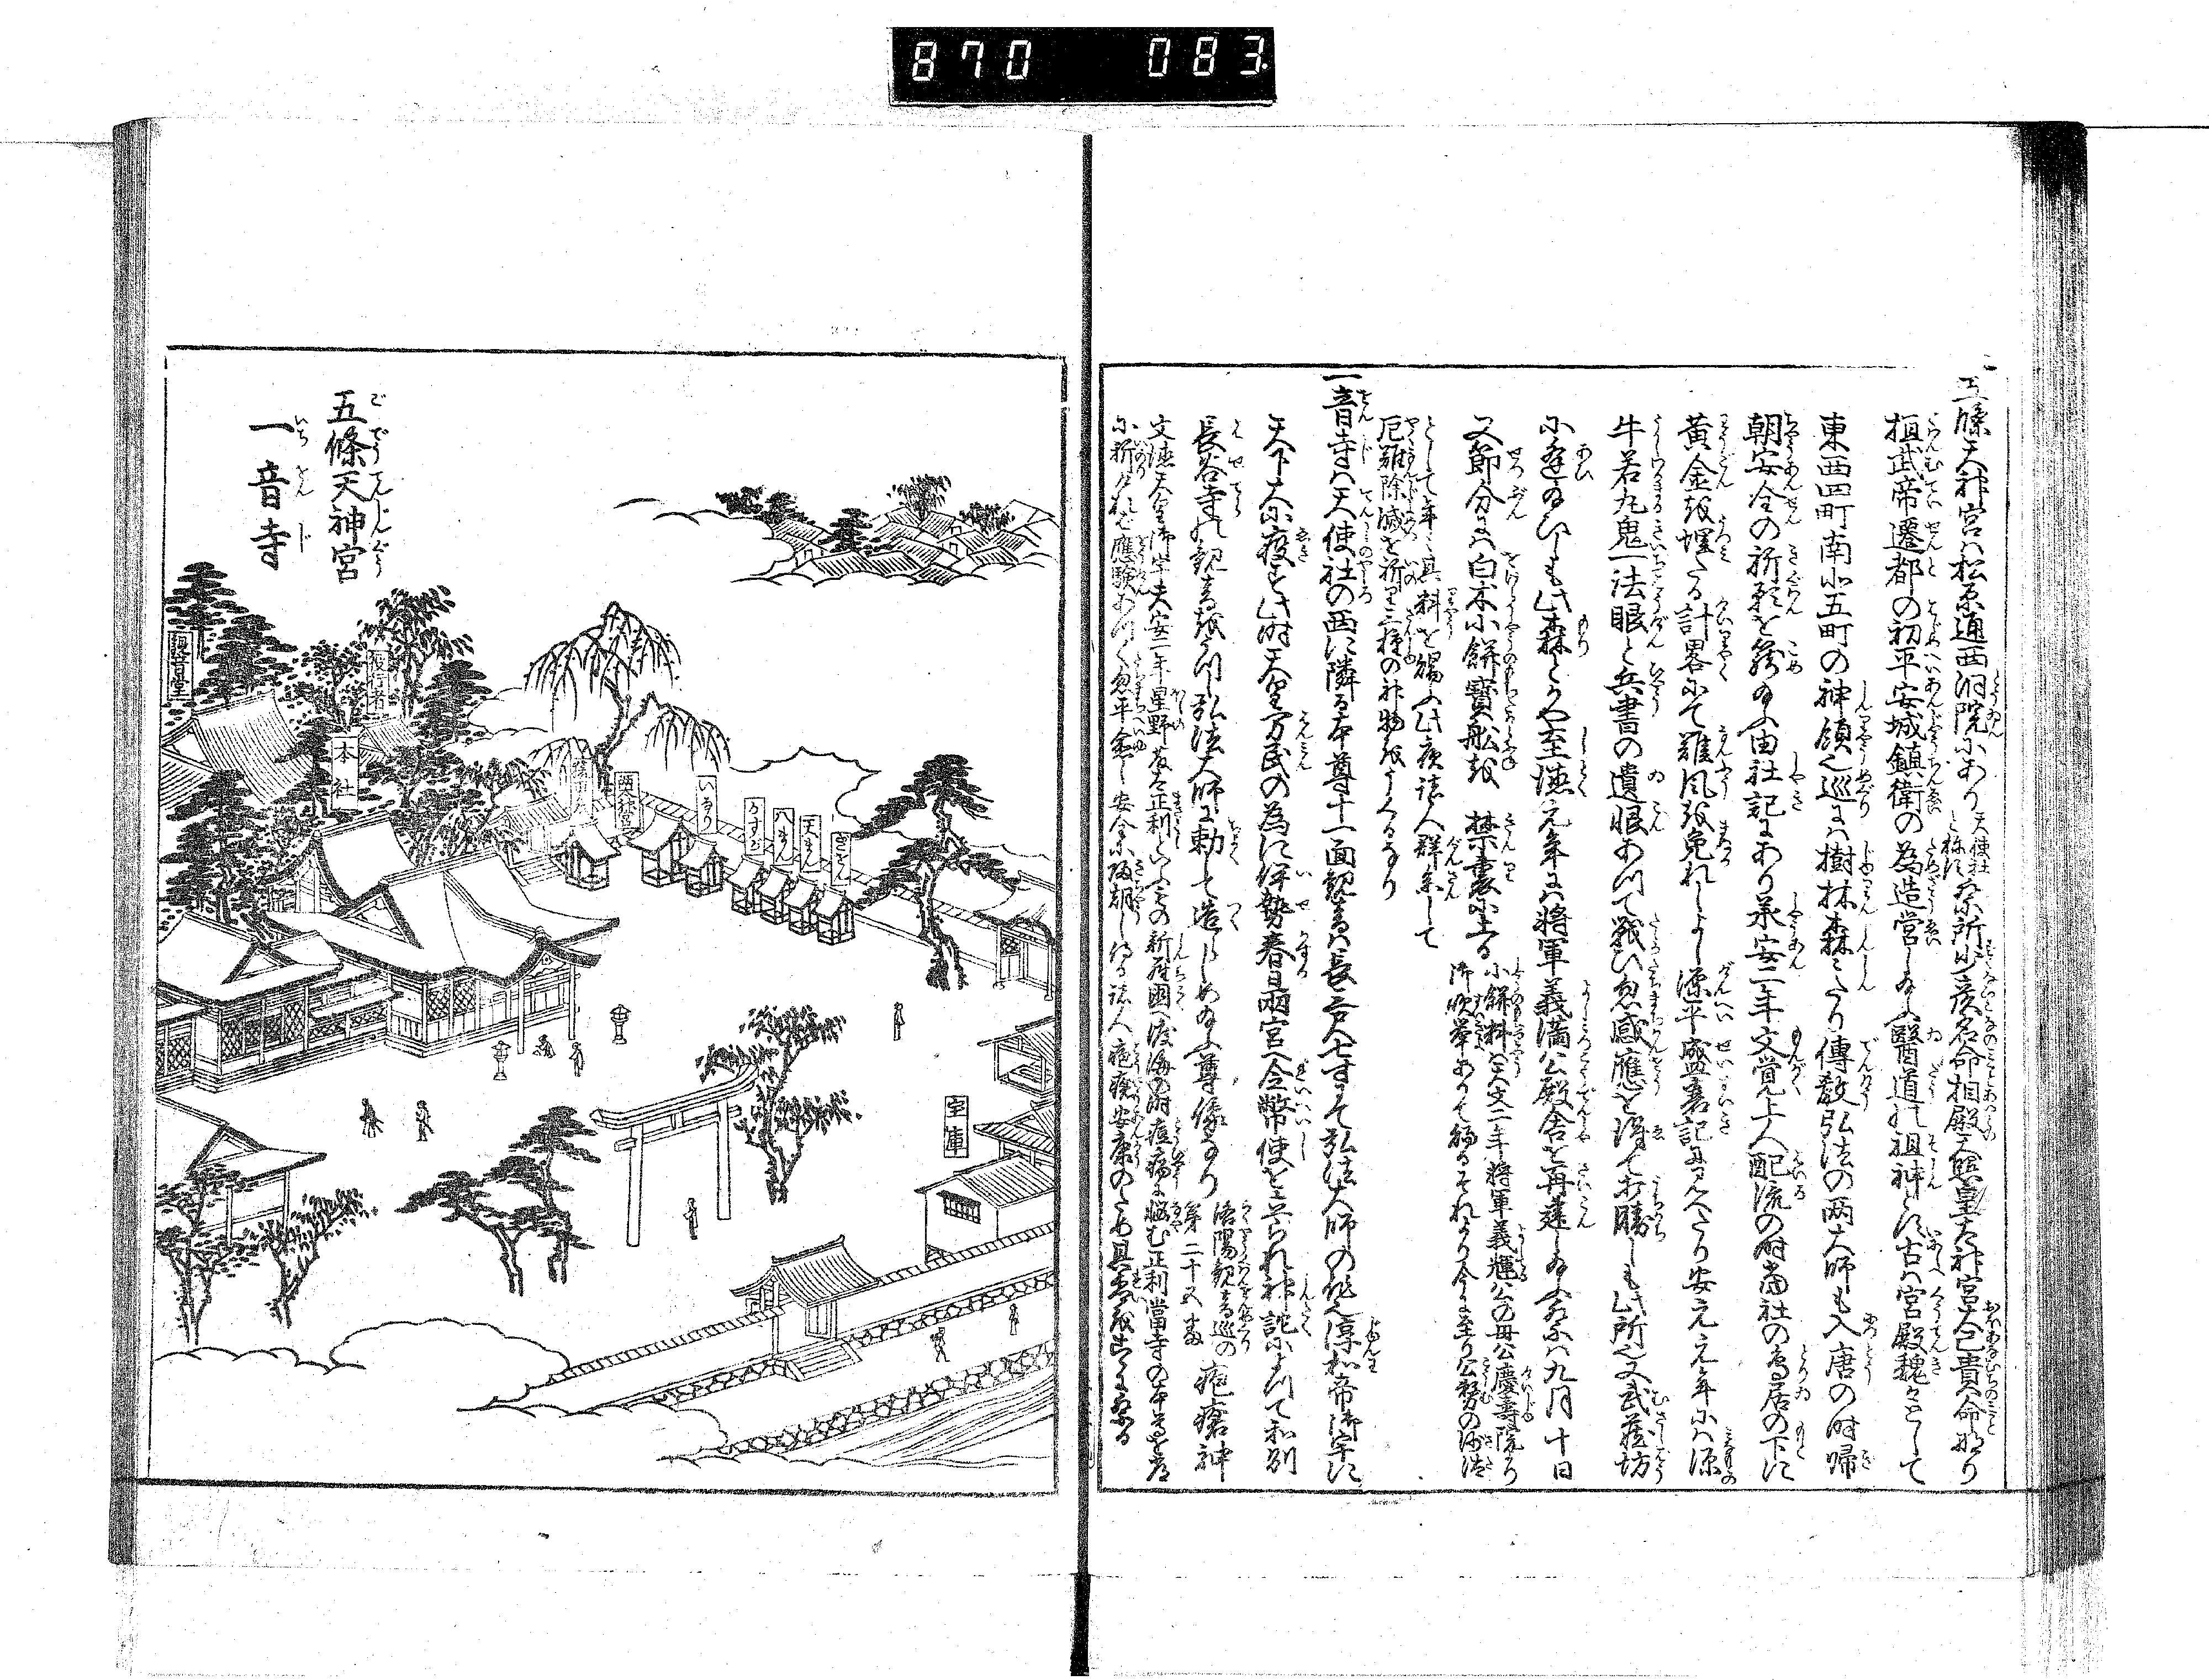 870 083
五條天神宮ハ松原通西洞院にあり
天使社
と称す
祭所少彦名命相殿天照皇大神宮大己貴命なり
桓武帝遷都の初平安城鎮衛の為造営し給ふ醫道の祖神とす古ハ宮殿魏々として
東西四町南北五町の神領也巡りハ樹林森々たり傳教弘法の両大師も入唐の時帰
朝安全の祈願を籠給ふ由社記にあり承安二年文覚上人配流の時當社の鳥居の下に
黄金を埋たる計畧にて難風を免れしよし源平盛衰記に見へたり安元元年にハ源
牛若丸鬼一法眼と兵書の遺恨あつて戦ひ忽感應を得て打勝しも此所也又武蔵坊
に逢給ひしも此森とかや至徳元年にハ将軍義満公殿舎を再建し給ふ祭ハ九月十日
又節分にハ白朮小餅寶舩を禁裏に上る
小餅料ハ天文二年将軍義輝公の母公慶壽院より
御吹挙ありて賜るそれより今に至り公務の沙汰
として年々其料を賜ふ此夜諸人群参して
厄難除滅を祈り三種の神物をうくるなり
一音寺ハ天使社の西に隣る本尊十一面観音ハ長二尺七寸にて弘法大師の作也淳和帝御宇に
天下大に疫す此時天皇万民の為に伊勢春日両宮へ奉幣使を立られ神託によつて和州
長谷寺の観音をうつし弘法大師に勅して造らしめ給ふ尊像なり
洛陽観音巡の
第二十五番
疱瘡神
文徳天皇御宇天安二年星野左正利といふもの新羅國へ渡海の時痘瘡に悩む正利當寺の本尊を遥
に祈りけれバ應験あつて忽平愈し安全に帰朝しける諸人疱瘡安康のため其名を爰に祭る
五條天神宮
ごでうてんじんぐう
一音寺
いちをんじ
観音堂
役行者
本社
いなり
かすが
八まん
天まん
宝庫